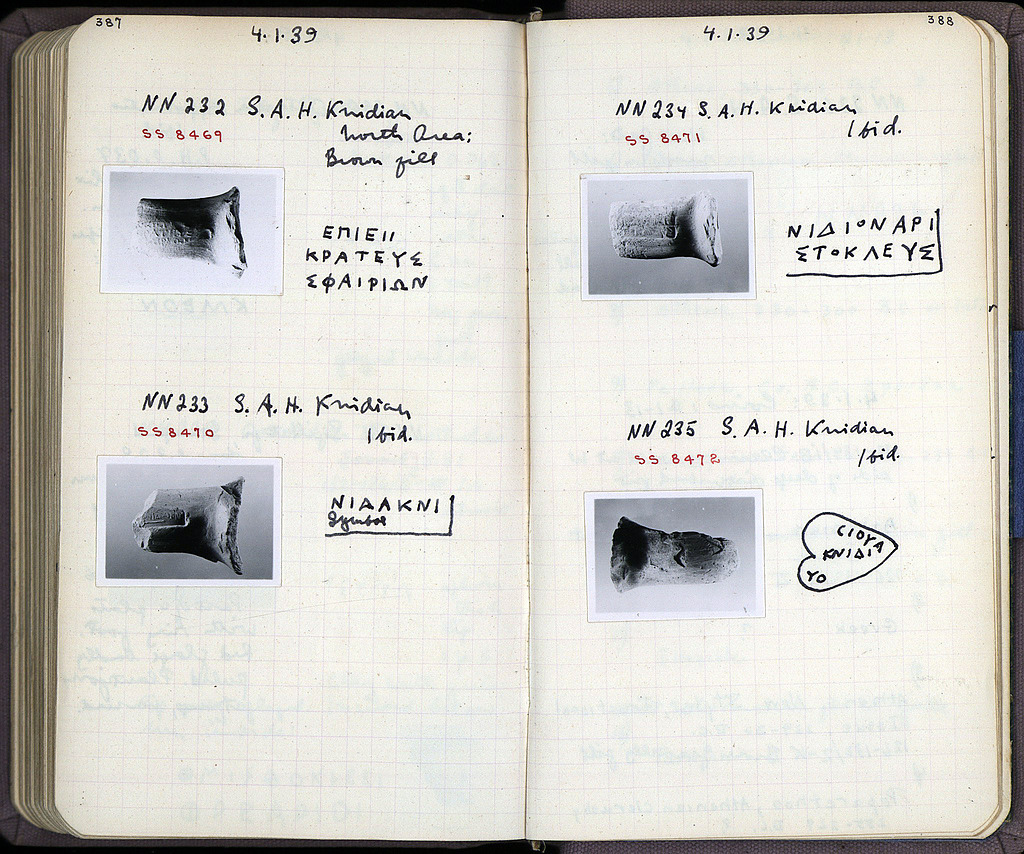 387
4.1.39
NN 232 S. A. H. Knidian
SS 8469
North Area;
Brown fill
ΕΠΙΕΠ
ΚΡΑΤΕΥΣ
ΣΦΑΙΡΙΩΝ
NN 233 S. A. H. Knidian
SS 8470
Ibid.
ΝΙΔΑΚΝΙ
Symbol
388
4.1.39
NN 234 S. A. H. Knidian
SS 8471
Ibid.
ΝΙΔΙΟΝΑΡΙ
ΣΤΟΚΛΕΥΣ
NN 235 S. A. H. Knidian
SS 8472
Ibid.
CΙΟΥΔ
ΚΝΙΔΙ
ΥΟ